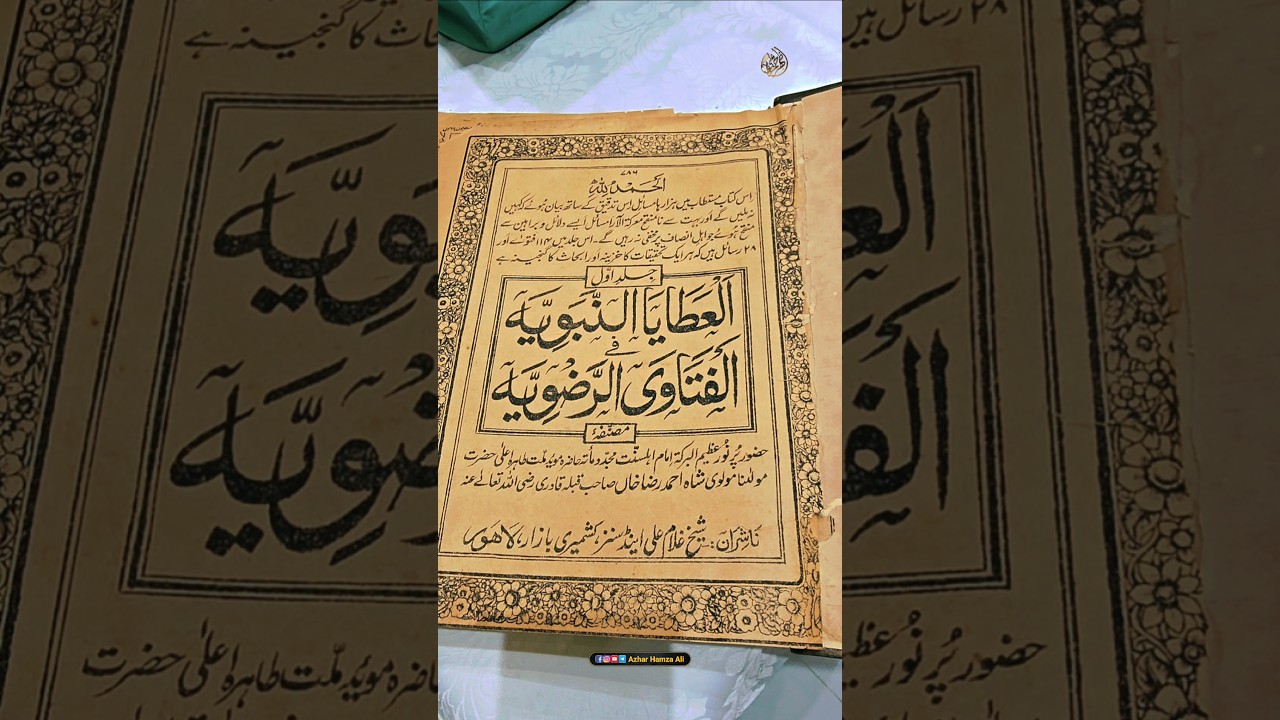 ۷۸۶
الحمد للہ
اس کتاب مستطاب میں ہزارہا مسائل اس تدقیق کے ساتھ بیان ہوئے کہ کہیں
نہ ملیں گے اور بہت سے نامنقح معرکۃ الآرا مسائل ایسے دلائل و براہین سے
منقح ہوئے جو اہل انصاف پر مخفی نہ رہیں گے۔ اس جلد میں ۱۱۴ فتوے اور
۲۸ رسائل ہیں کہ ہر ایک تحقیقات کا خزینہ اور ابحاث کا گنجینہ ہے
جلد اول
اَلْعَطَایَا النَّبَوِیَّہ
فی
اَلْفَتَاوَی الرَّضَوِیَّہ
مصنفۂ
حضور پُر نور عظیم البرکۃ امام اہلسنت مجدد مأتہ حاضرہ موید ملت طاہرہ اعلیٰ حضرت
مولٰنا مولوی شاہ احمد رضا خاں صاحب قبلہ قادری رضی اللہ تعالےٰ عنہ
ناشران:۔ شیخ غلام علی اینڈ سنز، کشمیری بازار، لاہور
Azhar Hamza Ali